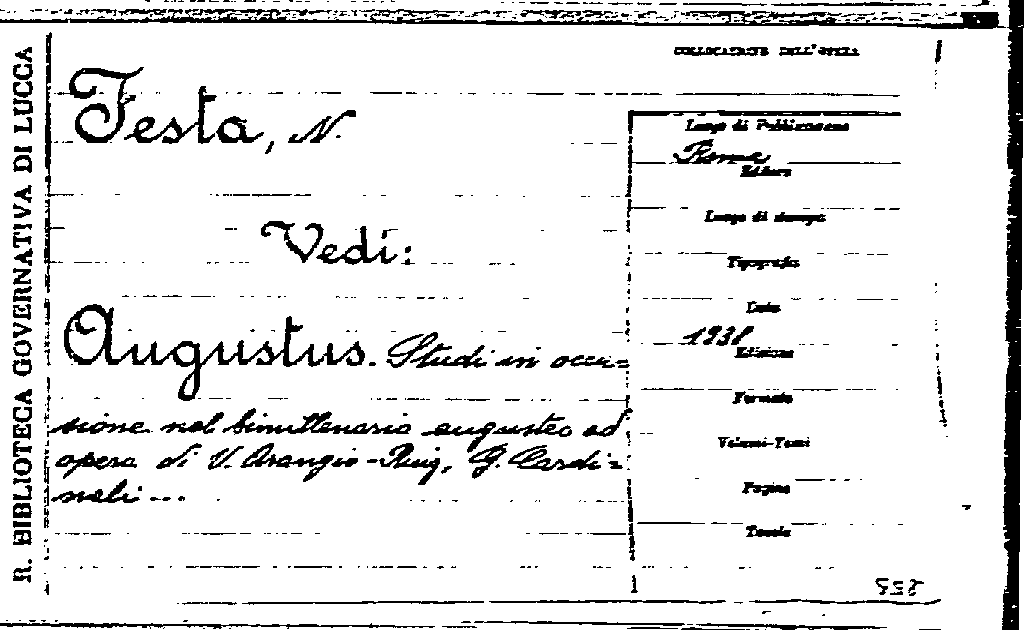 R. BIBLIOTECA GOVERNATIVA DI LUCCA
COLLOCAZIONE DELL'OPERA
Festa, N.
Vedi:
Augustus. Studi in occa=
sione nel bimillenario augusteo ad
opera di V. Arangio-Ruiz, G. Cardi=
nali ...
Luogo di Pubblicazione
Roma
Editore
Luogo di stampa
Tipografia
Data
1938
Edizione
Formato
Volumi-Tomi
Pagine
Tavole